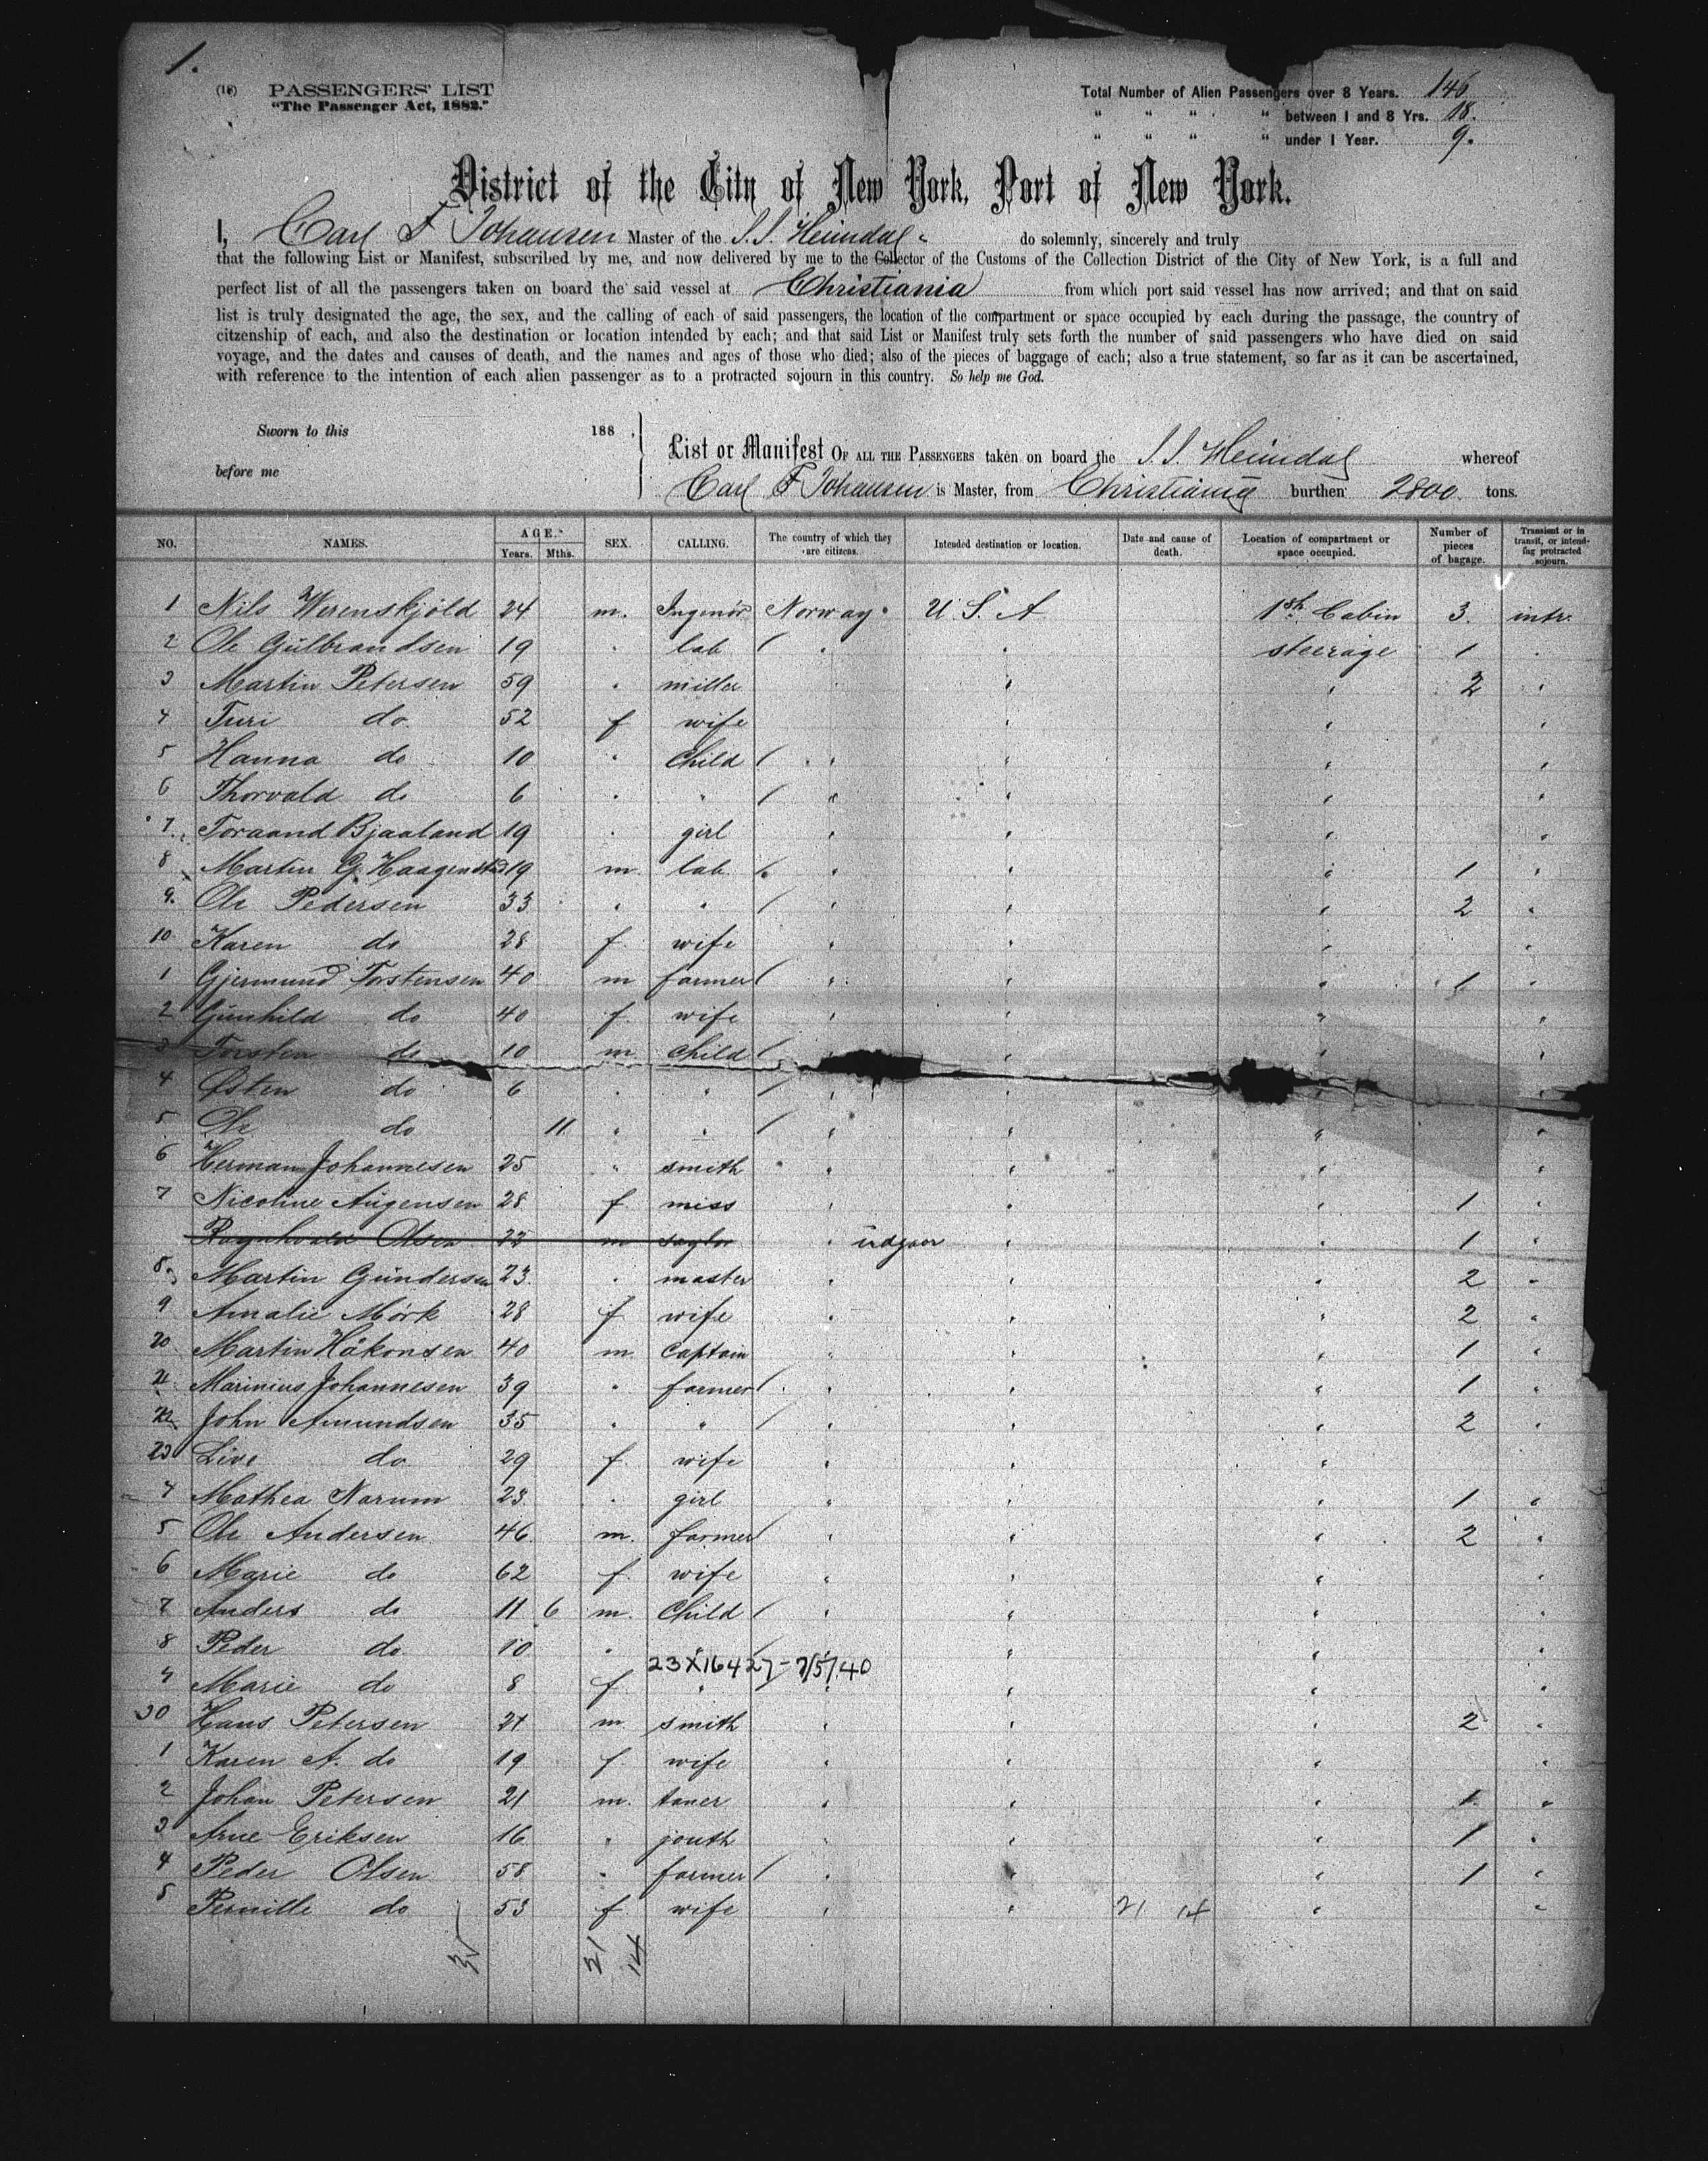 1.
(18) PASSENGERS' LIST
"The Passenger Act, 1882."
Total Number of Alien Passengers over 8 Years. 146
" " " " between 1 and 8 Yrs. 18.
" " " " under 1 Year. 9.
District of the City of New York, Port of New York.
I, Carl F Johansen Master of the S.S. Heimdal do solemnly, sincerely and truly
that the following List or Manifest, subscribed by me, and now delivered by me to the Collector of the Customs of the Collection District of the City of New York, is a full and
perfect list of all the passengers taken on board the said vessel at Christiania from which port said vessel has now arrived; and that on said
list is truly designated the age, the sex, and the calling of each of said passengers, the location of the compartment or space occupied by each during the passage, the country of
citzenship of each, and also the destination or location intended by each; and that said List or Manifest truly sets forth the number of said passengers who have died on said
voyage, and the dates and causes of death, and the names and ages of those who died; also of the pieces of baggage of each; also a true statement, so far as it can be ascertained,
with reference to the intention of each alien passenger as to a protracted sojourn in this country. So help me God.
Sworn to this 188 .
before me
List or Manifest OF ALL THE PASSENGERS taken on board the S.S. Heimdal whereof
Carl F Johansen is Master, from Christiania burthen 2800 tons.
NO. NAMES. AGE. Years. Mths. SEX. CALLING. The country of which they are citizens. Intended destination or location. Date and cause of death. Location of compartment or space occupied. Number of pieces of bagage. Transient or in transit, or intending protracted sojourn.
1 Nils Werenskjöld 24 m. Ingeniör Norway U. S. A 1st Cabin 3. intr.
2 Ole Gulbrandsen 19 " lab " " steerage 1 "
3 Martin Petersen 59 " miller " " 2 "
4 Turi do 52 f wife " " "
5 Hanna do 10 " Child " " " "
6 Thorvald do 6 " " " " " "
7 Toraand Bjaaland 19 " girl " " " "
8 Martin G. Haagenstad 19 m. lab. " " " 1 "
9. Ole Pedersen 33 " " " " " 2 "
10 Karen do 28 f. wife " " " "
1 Gjermund Torstensen 40 m farmer " " " 1 "
2 Gunhild do 40 f. wife " " " "
3 Torsten do 10 m child " " " "
4 Østen do 6 " " " " " "
5 Ole do 11 " " " " " "
6 Herman Johannesen 25 " smith " " " "
7 Nicoline Augensen 28 f. miss " " " 1 "
Ragnhvald Olsen 22 m saylor " udgaar " " 1 "
8 Martin Gundersen 23. " master " " " 2 "
9 Amalie Mörk 28 f wife " " " 2 "
20 Martin Håkonsen 40 m. Captain " " " 1 "
21 Marinius Johannesen 39 " farmer " " " 1 "
22 John Amundsen 35 " " " " " 2 "
23 Live do 29 f. wife " " "
4 Mathea Narum 23 " girl " " " 1 "
5 Ole Andersen 46 m. farmer " " " 2 "
6 Marie do 62 f. wife " " " "
7 Anders do 11 6 m. Child " " " "
8 Peder do 10 " " " " "
23X16427-7/5/40
9 Marie do 8 f " " " " "
30 Hans Petersen 21 m smith " " " 2 "
1 Karen A. do 19 f. wife " " " "
2 Johan Petersen 21 m. taner " " " 1 "
3 Arne Eriksen 16 " jouth " " " 1 "
4 Peder Olsen 58 " farmer " " " 1 "
5 Pernille do 53 f wife " " 21 14 " "
35 21 14